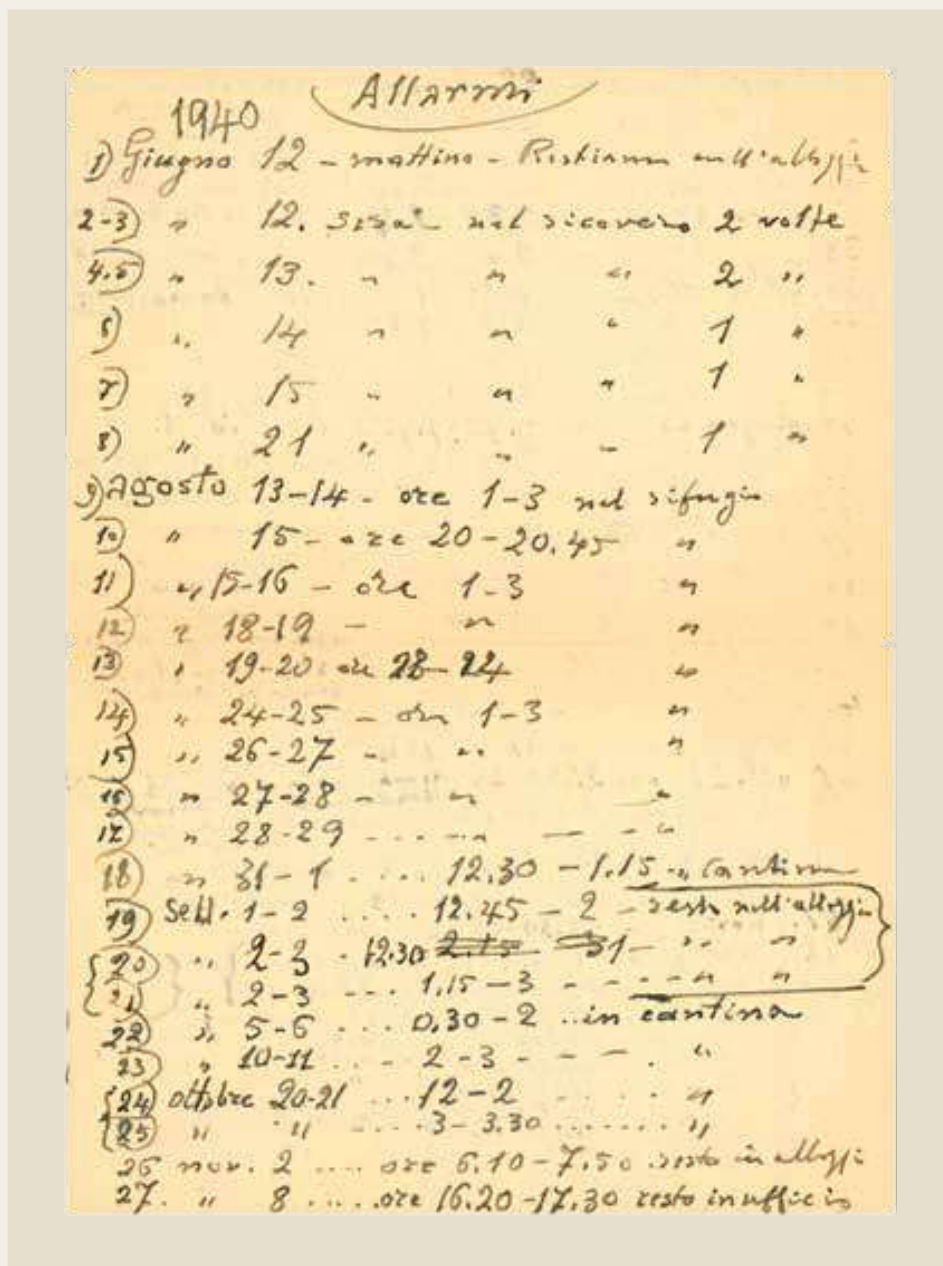 Allarmi
1940
1) Giugno 12 - mattino - Restiamo nell'alloggio
2-3) " 12. sera nel ricovero 2 volte
4.5) " 13. " " " 2 "
6) " 14 " " " 1 "
7) " 15 " " " 1 "
8) " 21 " " " 1 "
9) Agosto 13-14 - ore 1-3 nel rifugio
10) " 15 - ore 20-20.45 "
11) " 15-16 - ore 1-3 "
12) " 18-19 - " "
13) " 19-20 ore "
14) " 24-25 - ore 1-3 "
15) " 26-27 - " "
16) " 27-28 - " "
17) " 28-29 .... " - - "
18) " 31-1 .... 12.30 - 1.15 " cantina
19) Sett. 1-2 .... 12.45 - 2 - resto nell'alloggio
20) " 2-3 - 12.30 2.15 31 - " "
21) " 2-3 ... 1,15 - 3 - - - - " "
22) " 5-6 ... 0.30 - 2 .. in cantina
23) " 10-11 ... - 2-3 - - - . "
24) ottobre 20-21 ... 12-2 ..... "
25) " " .... 3-3.30 ....... "
26 nov. 2 .... ore 6.10-7.50 resto in alloggio
27. " 8 ..... ore 16.20-17.30 resto in ufficio